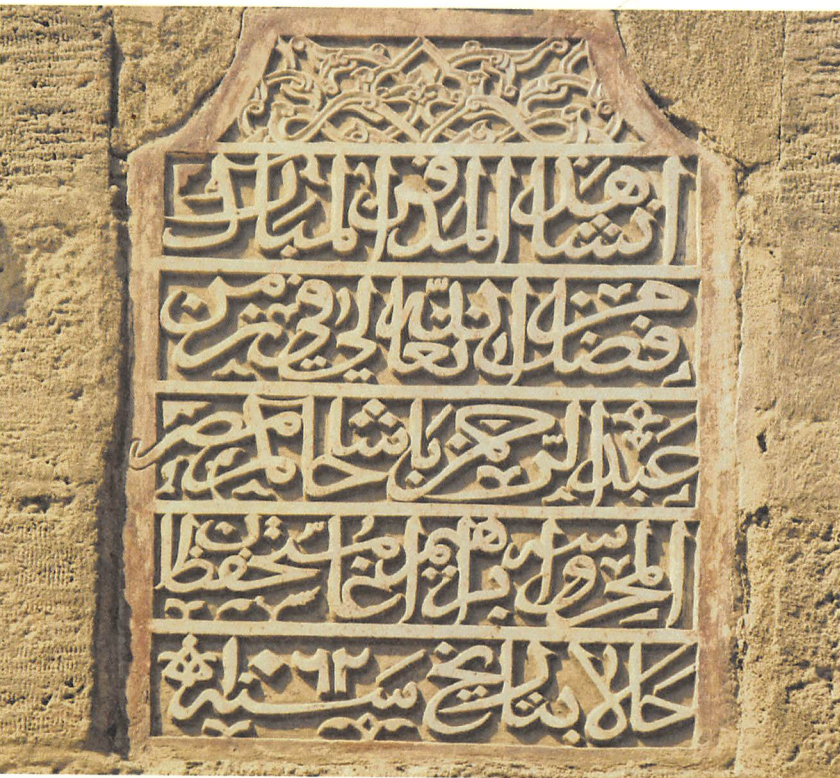 انشا هذه المدفن المبارك
من فضل الله تعالي في زمن
عبد الرحمن باشا حاكم مصر
المحروسه ابراهيم اغا مستحفظان
حالا بتاريخ سنه ١٠٦٢